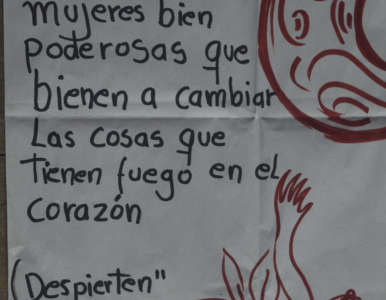 mujeres bien
poderosas que
bienen a cambiar
Las cosas que
Tienen fuego en el
corazón
(Despierten"